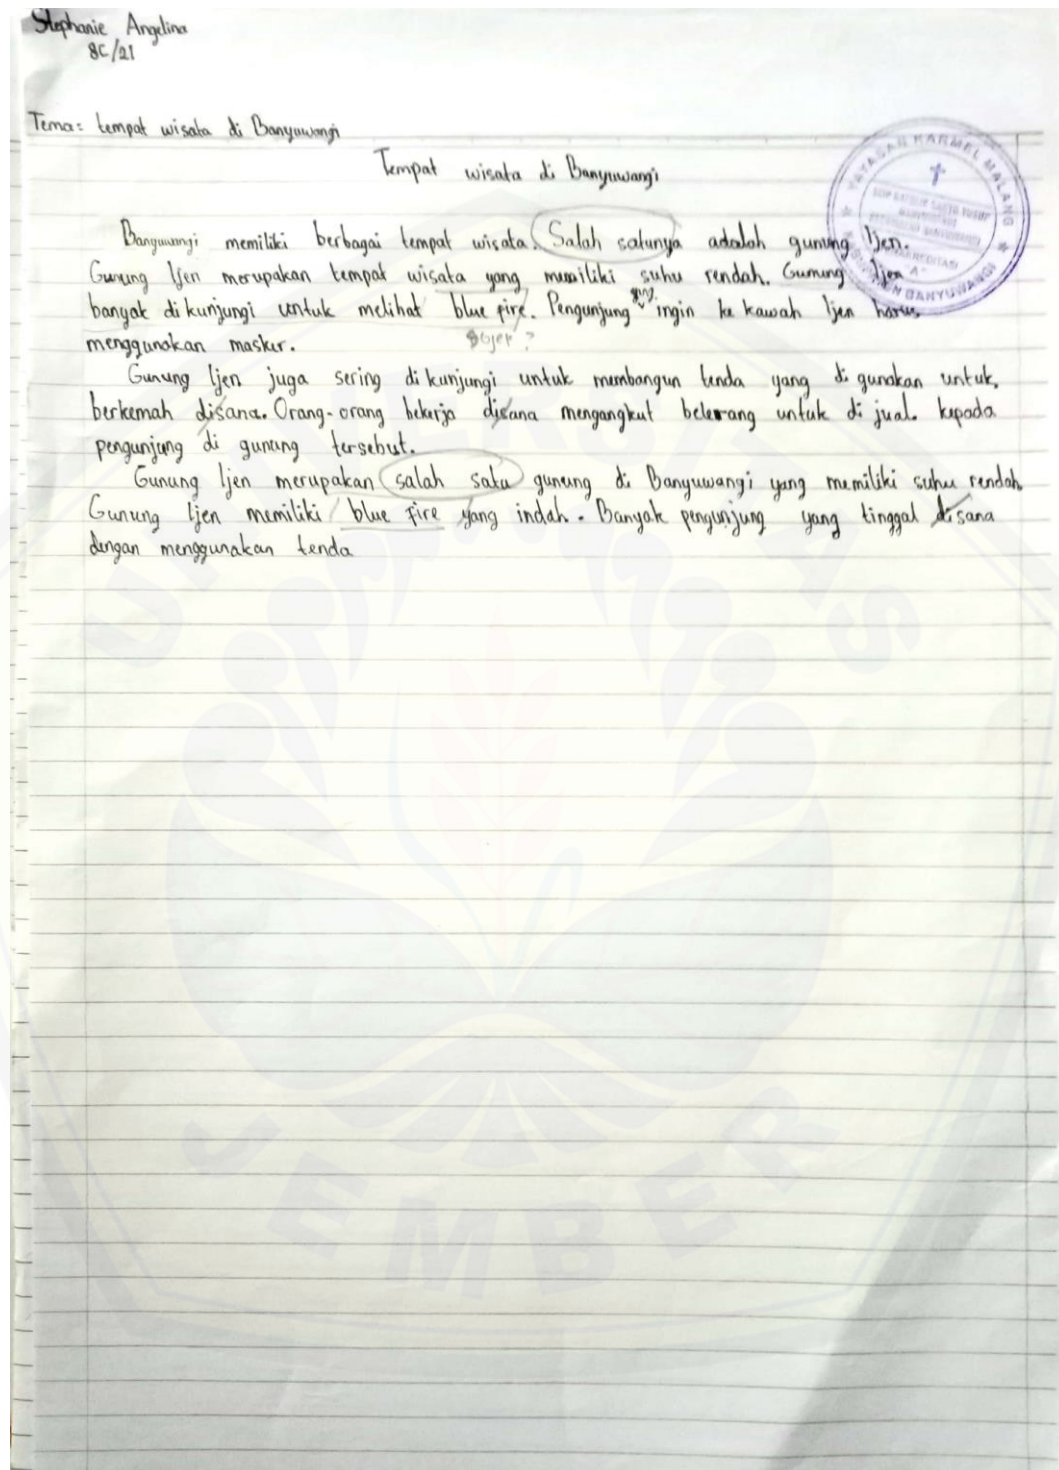 Stephanie Angelina
8C/21
Tema: tempat wisata di Banyuwangi
Tempat wisata di Banyuwangi
Banyuwangi memiliki berbagai tempat wisata. Salah satunya adalah gunung Ijen.
Gunung Ijen merupakan tempat wisata yang memiliki suhu rendah. Gunung Ijen
banyak di kunjungi untuk melihat blue fire. Pengunjung yang ingin ke kawah Ijen harus
menggunakan masker.
Gunung Ijen juga sering di kunjungi untuk membangun tenda yang di gunakan untuk,
berkemah disana. Orang-orang bekerja disana mengangkut belerang untuk di jual kepada
pengunjung di gunung tersebut.
Gunung Ijen merupakan salah satu gunung di Banyuwangi yang memiliki suhu rendah
Gunung Ijen memiliki blue fire yang indah. Banyak pengunjung yang tinggal disana
dengan menggunakan tenda
YAYASAN KARMEL MALANG
KABUPATEN BANYUWANGI
UNIVERSITAS
JEMBER